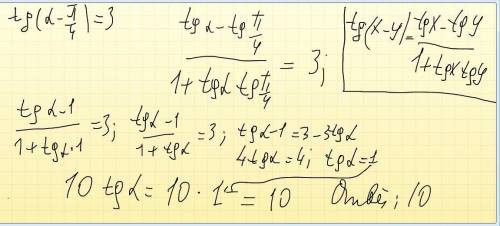 tg(α-π/4)=3
(tgα-tgπ/4)/(1+tgα tgπ/4) = 3;
tg(x-y)=(tgx-tgy)/(1+tgxtgy)
(tgα-1)/(1+tgα·1)=3; (tgα-1)/(1+tgα)=3; tgα-1=3-3tgα
4tgα=4; tgα=1
10 tgα= 10·1=10 Ответ: 10